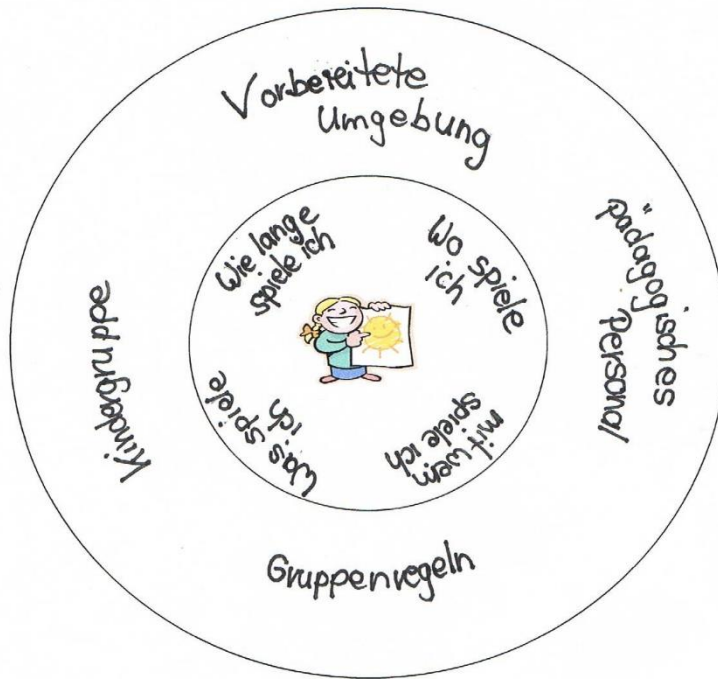 Vorbereitete
Umgebung
pädagogisches
Personal
Gruppenregeln
Kindergruppe
Wie lange
spiele ich
Wo spiele
ich
mit wem
spiele ich
Was spiele
ich